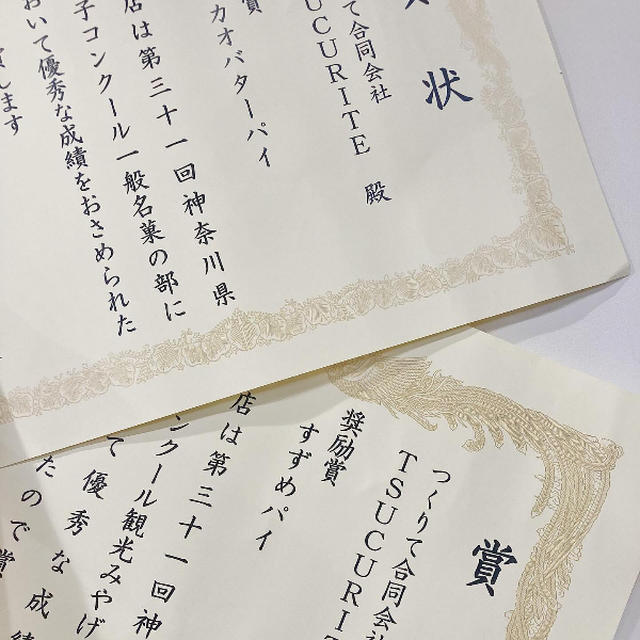 状
て合同会社
UCURITE 殿
賞
カオバターパイ
店は第三十一回神奈川県
子コンクール一般名菓の部に
おいて優秀な成績をおさめられた
賞します
賞
つくりて合同会社
TSUCURIT
奨励賞
すずめパイ
店は第三十一回神
ンクール観光みやげ
て優秀な成績
たので賞